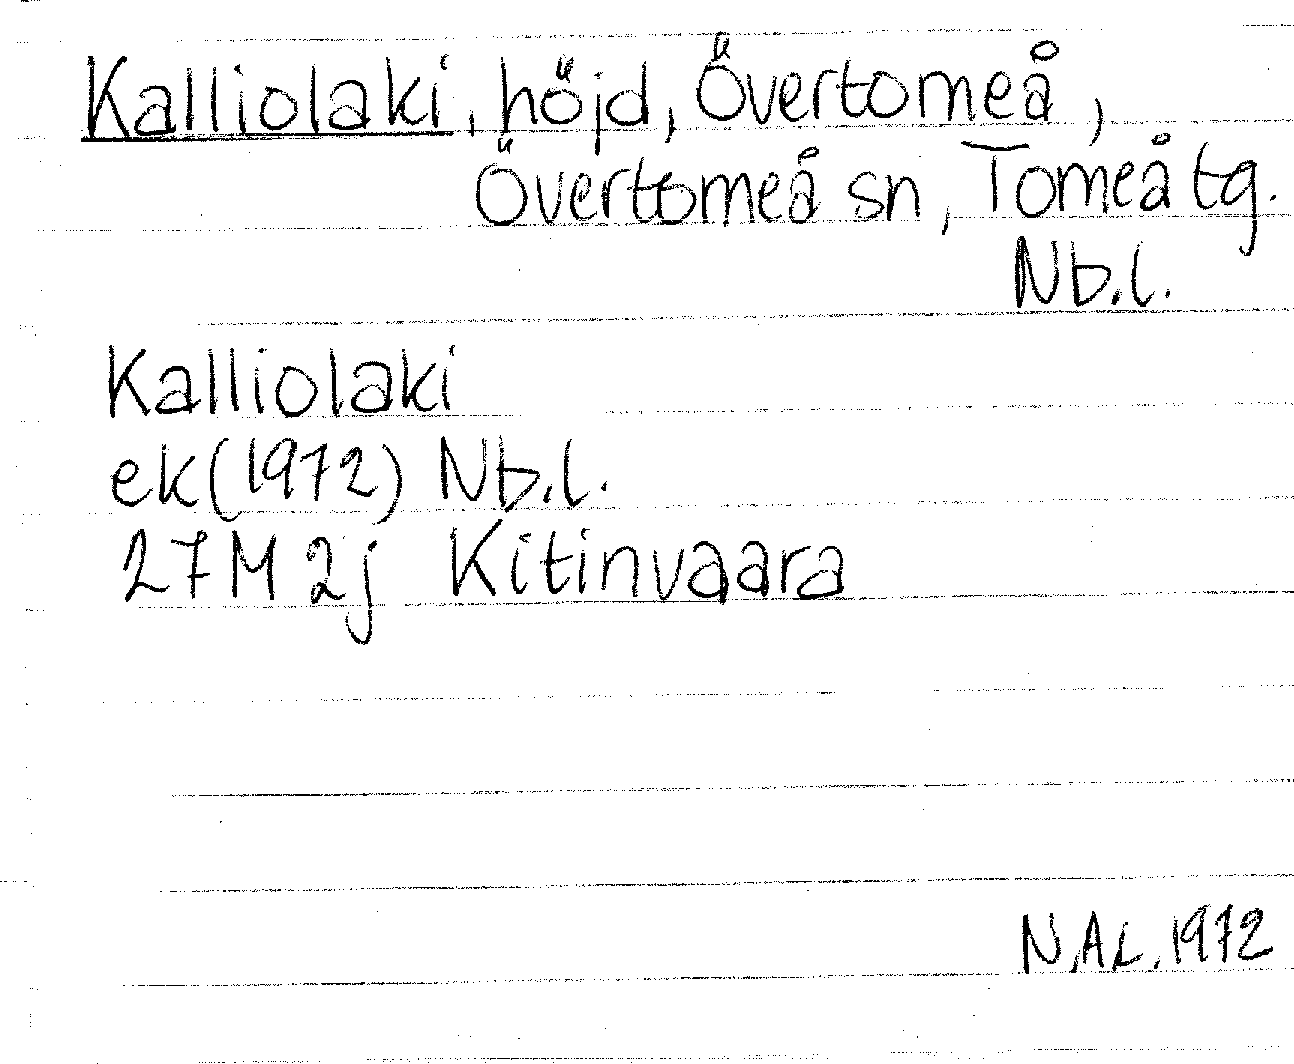 Kalliolaki, höjd, Övertorneå,
Övertorneå sn, Torneå tg.
Nb.l.
Kalliolaki
ek (1972) Nb.l.
27M 2j Kitinvaara
N.A.L. 1972